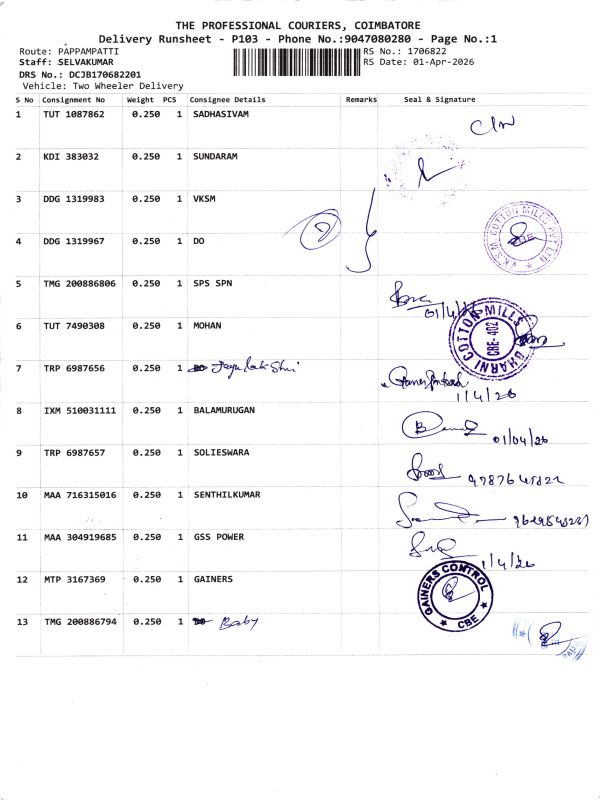 THE PROFESSIONAL COURIERS, COIMBATORE
Delivery Runsheet - P103 - Phone No.:9047080280 - Page No.:1
Route: PAPPAMPATTI RS No.: 1706822
Staff: SELVAKUMAR RS Date: 01-Apr-2026
DRS No.: DCJB170682201
Vehicle: Two Wheeler Delivery
S No Consignment No Weight PCS Consignee Details Remarks Seal & Signature
1 TUT 1087862 0.250 1 SADHASIVAM
2 KDI 383032 0.250 1 SUNDARAM
3 DDG 1319983 0.250 1 VKSM
V.K.S.M. COTTON MILLS PVT LTD
4 DDG 1319967 0.250 1 DO
5 TMG 200886806 0.250 1 SPS SPN
6 TUT 7490308 0.250 1 MOHAN
DHARNI COTTON MILLS
CBE- 402
7 TRP 6987656 0.250 1 Jayalakshmi
1/4/26
8 IXM 510031111 0.250 1 BALAMURUGAN
01/04/26
9 TRP 6987657 0.250 1 SOLIESWARA
10 MAA 716315016 0.250 1 SENTHILKUMAR
11 MAA 304919685 0.250 1 GSS POWER
1/4/26
12 MTP 3167369 0.250 1 GAINERS
GAINERS CONTROL
CBE
13 TMG 200886794 0.250 1 Baby